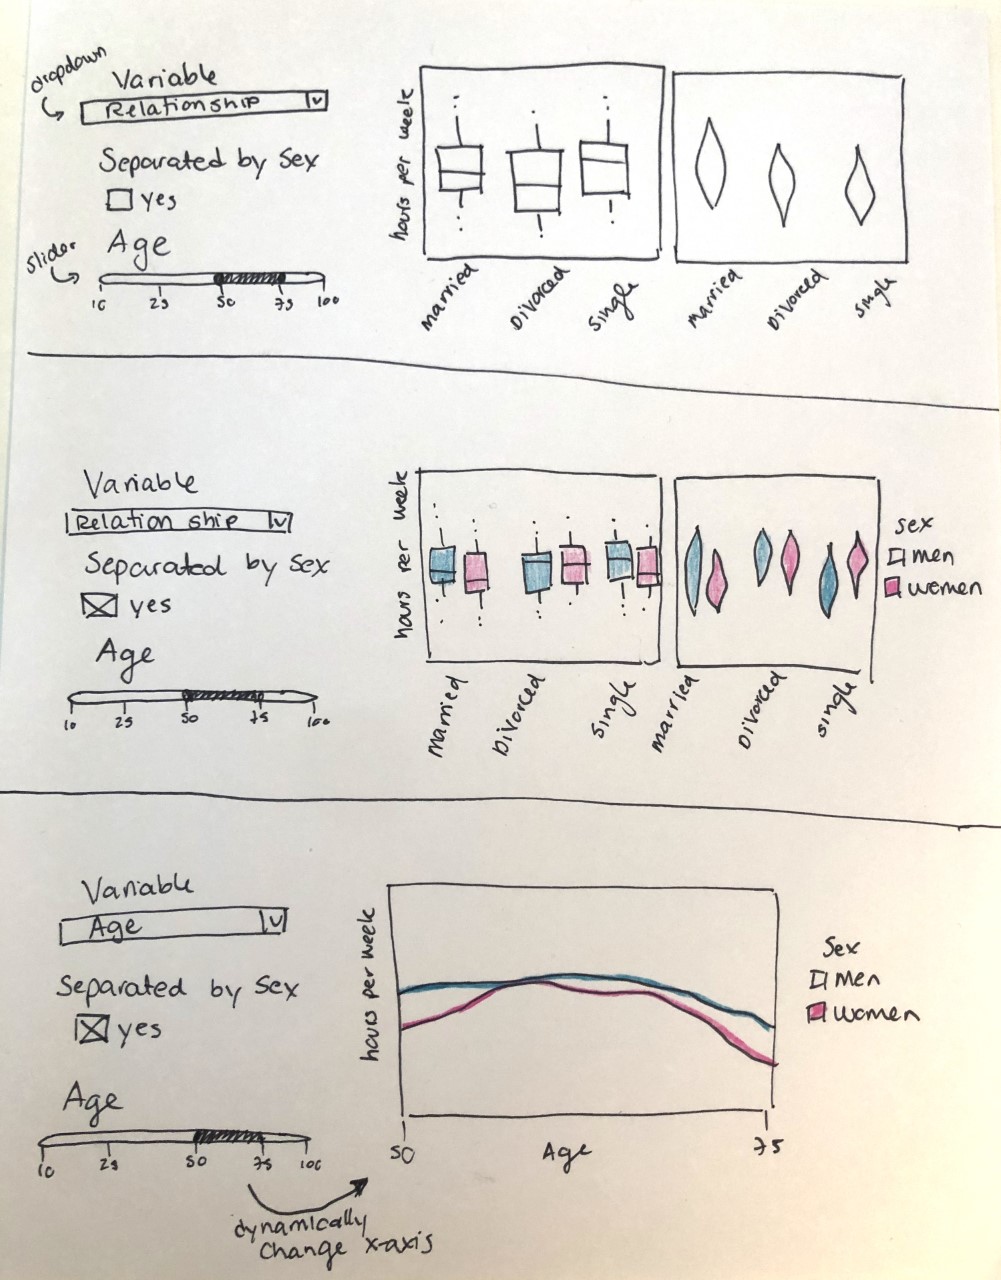 dropdown
Variable
Relationship
Separated by Sex
yes
slider
Age
10 25 50 75 100
hours per week
married Divorced Single
married Divorced Single
Variable
Relation ship
Separated by Sex
yes
Age
10 25 50 75 100
hours per week
married Divorced Single
married Divorced Single
sex
men
women
Variable
Age
Separated by Sex
yes
Age
10 25 50 75 100
hours per week
50 Age 75
Sex
Men
Women
dynamically
Change x-axis